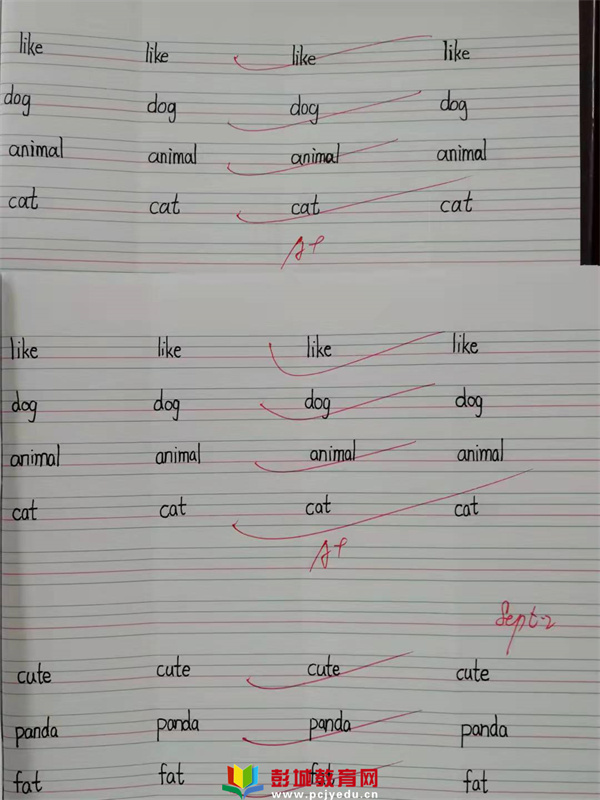 like like like like
dog dog dog dog
animal animal animal animal
cat cat cat cat
A+
like like like like
dog dog dog dog
animal animal animal animal
cat cat cat cat
A+
Sept-2
cute cute cute cute
panda panda panda panda
fat fat fat fat
彭城教育网
www.pcjyedu.cn